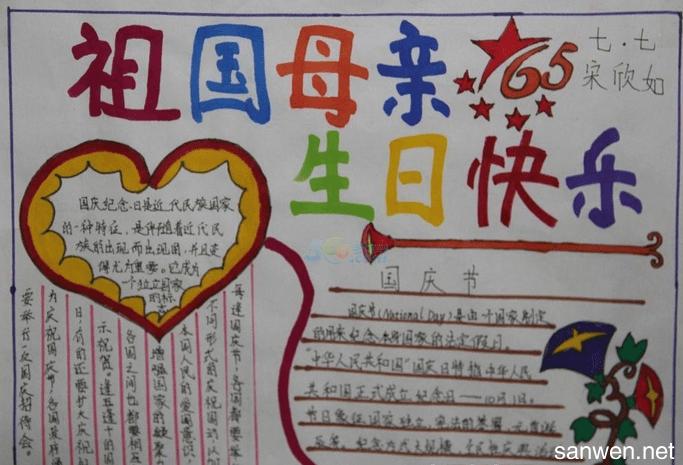 祖国母亲
65
七.七
宋欣如
生日快乐
国庆纪念日是近代民族国家
的一种特征，是伴随着近代民
族的出现而出现的，并且变
得尤为重要。它成为
一个独立国家
的标
志
国庆节
国庆节(National Day)是由一个国家制定
的用来纪念本身国家的法定假日
"中华人民共和国"国庆日特指中华人民
共和国正式成立纪念日——10月1日。
节日象征国家独立、宪法的签署、元首诞
每逢国庆节，各国都要举
不同形式的庆祝活动，以加
本国人民的爱国意识，
增强国家的凝聚力
各国之间也都要相互
示祝贺。逢五逢十的国
日，有的还要扩大庆祝
为庆祝国庆节，各国政府
要举行一次国庆招待会。
sanwen.net